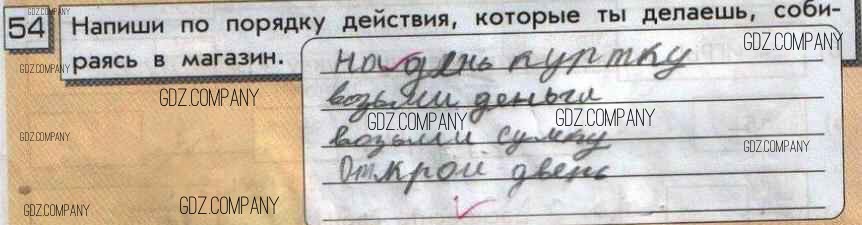 54 Напиши по порядку действия, которые ты делаешь, соби-
раясь в магазин.
Надень куртку
возьми деньги
возьми сумку
Открой дверь
GDZ.COMPANY
GDZ.COMPANY
GDZ.COMPANY
GDZ.COMPANY
GDZ.COMPANY
GDZ.COMPANY
GDZ.COMPANY
GDZ.COMPANY
GDZ.COMPANY
GDZ.COMPANY